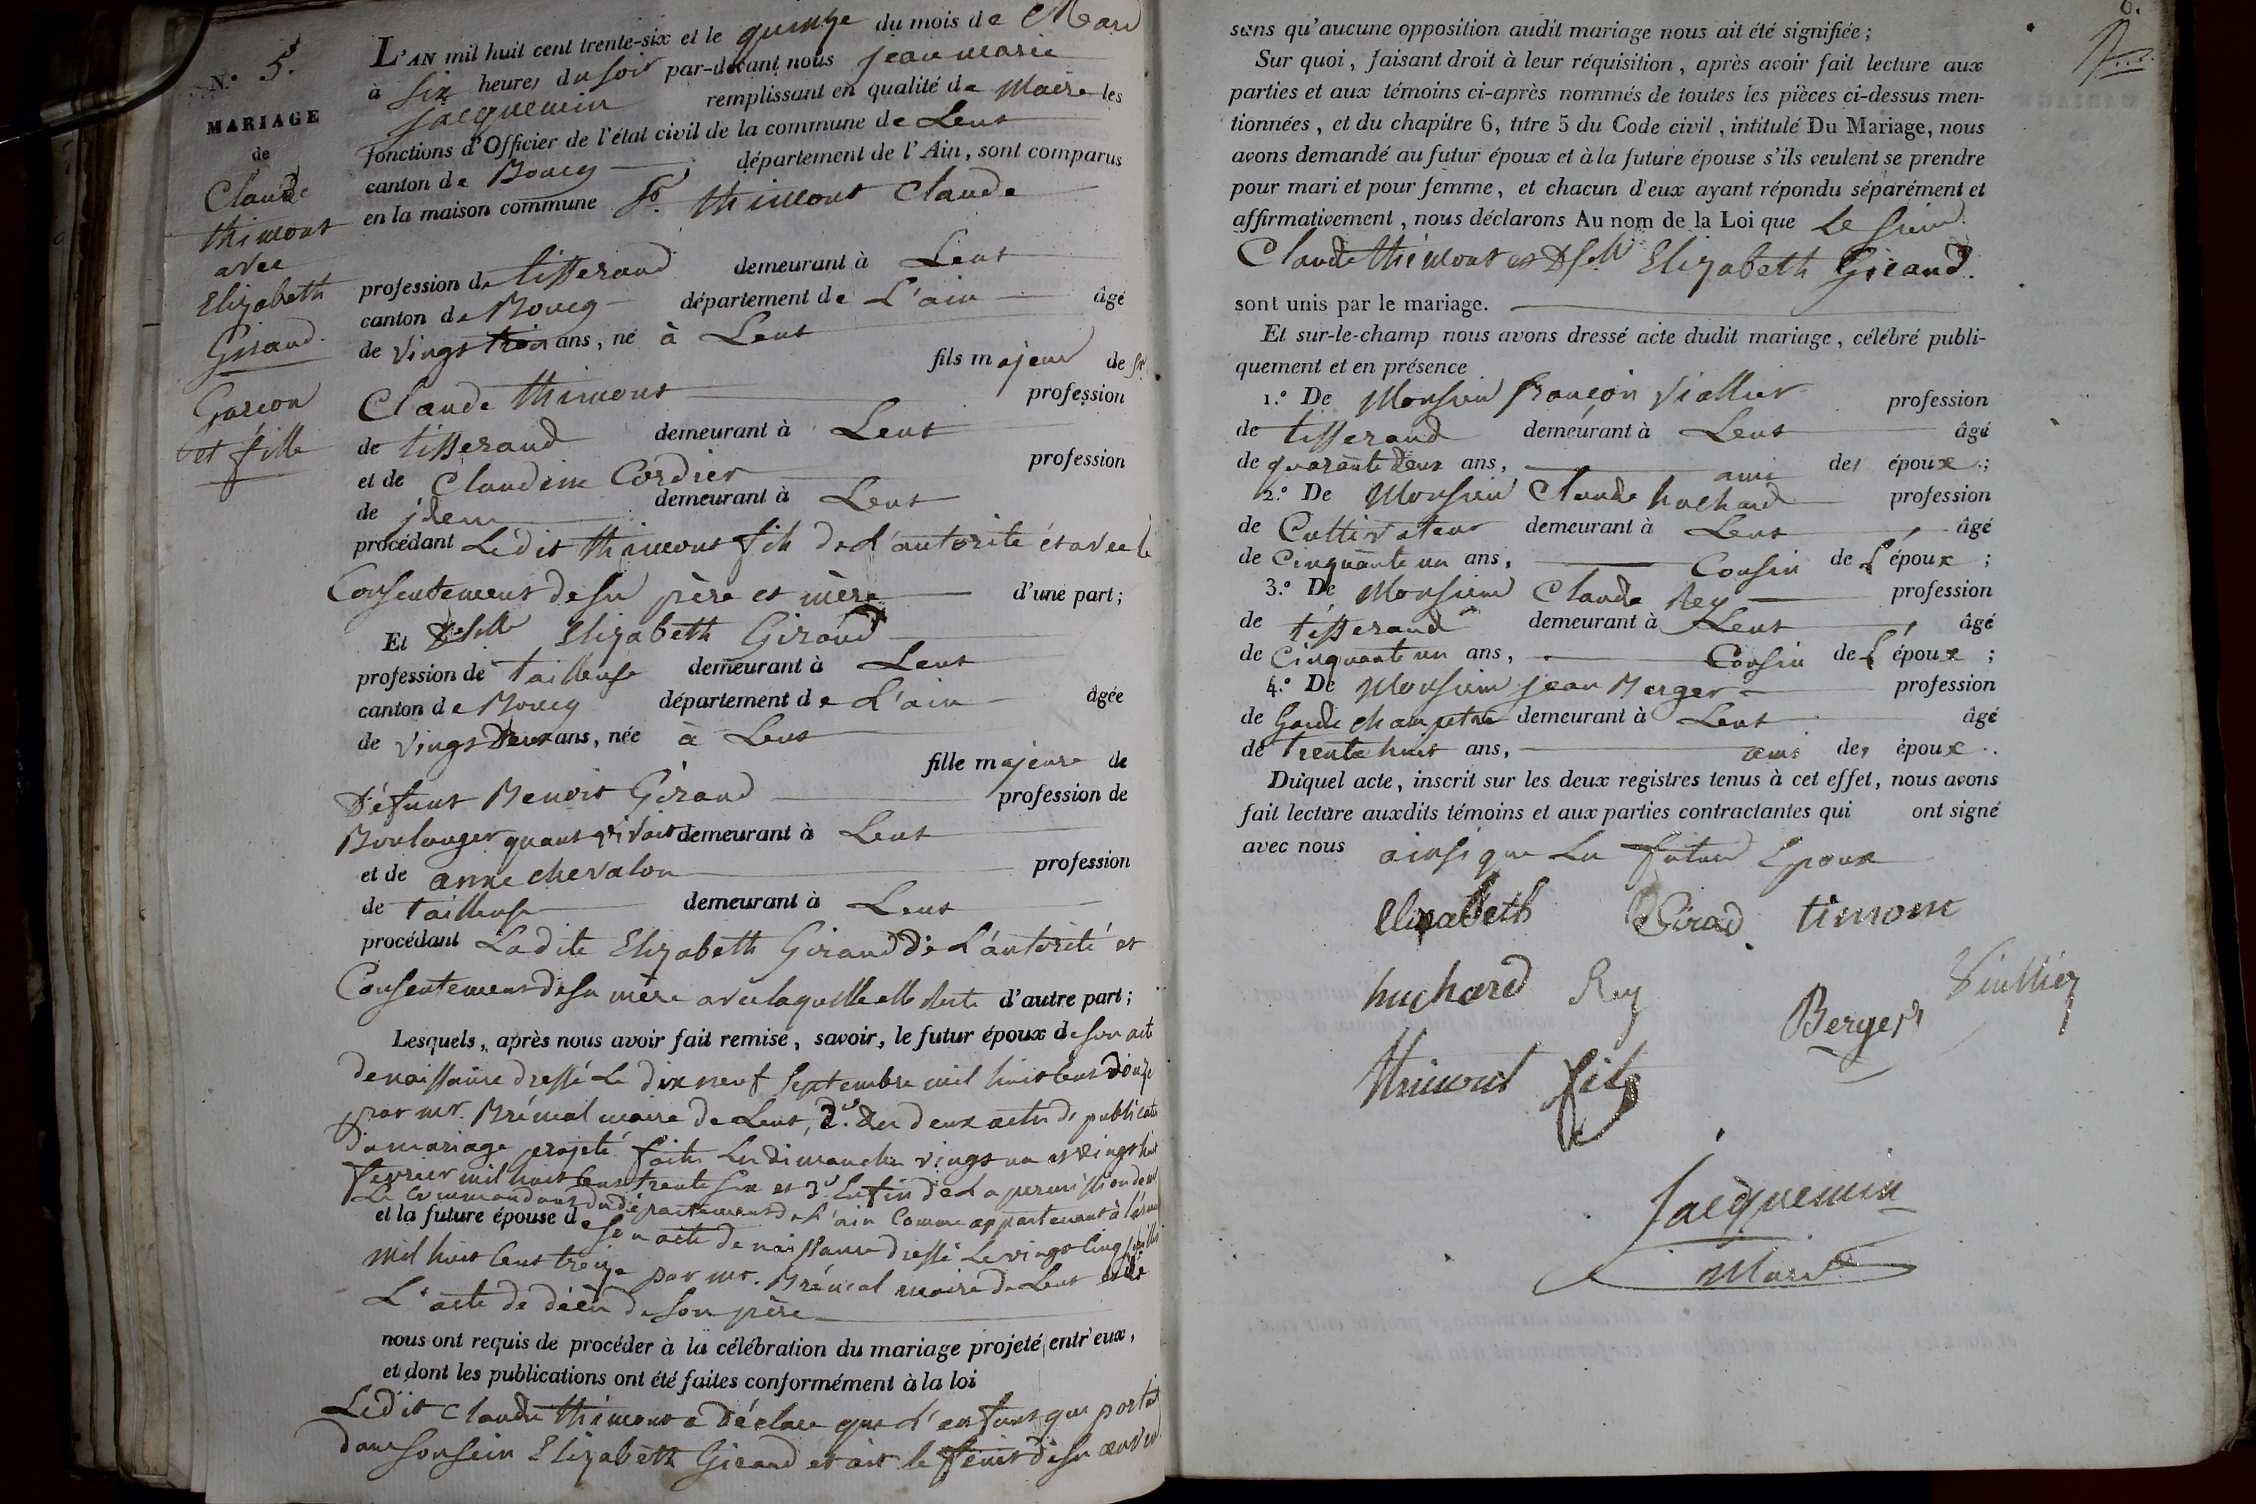 N.° 5.
MARIAGE
de
Claude
thimont
avec
Elizabeth
Giraud.
Garcon
et fille
L'AN mil huit cent trente-six et le quinze du mois de Mars
à six heures du soir par-devant nous jean marie
jacquemin remplissant en qualité de Maire les
fonctions d'Officier de l'état civil de la commune de Lent
canton de Bourg département de l'Ain, sont comparus
en la maison commune Sr. thimont Claude
profession de tisserand demeurant à Lent
canton de Bourg département de L'ain âgé
de vingt trois ans, né à Lent
fils majeur de Sr.
Claude thimont profession
de tisserand demeurant à Lent
et de Claudine Cordier profession
de idem demeurant à Lent
procédant Ledit thimont fils de L'autorité et avec le
Consentement de ses père et mère d'une part;
Et Dselle Elizabeth Giraud
profession de tailleuse demeurant à Lent
canton de Bourg département de L'ain âgée
de vingt Deux ans, née à Lent
fille majeure de
Défunt Benoit Giraud profession de
Boulanger quant vivait demeurant à Lent
et de anne chevalon profession
de tailleuse demeurant à Lent
procédant Ladite Elizabeth Giraud De L'autorité et
Consentement de sa mère avec laquelle elle Reste d'autre part;
Lesquels, après nous avoir fait remise, savoir, le futur époux de son acte
de naissance dressé Le dix neuf Septembre mil huit cent douze
par mr. Brémal maire de Lent, 2.° des deux actes de publication
du mariage projeté faites les dimanches vingt un et vingt huit
fevrier mil huit cent trente six et 3.° Enfin de La permission de mr
Le Commandant du département de L'ain Comme appartenant à l'armée
et la future épouse de son acte de naissance dressé Le vingt cinq juillet
mil huit cent treize par mr. Brémal maire de Lent et de
L'acte de décès de son père
nous ont requis de procéder à la célébration du mariage projeté entr'eux,
et dont les publications ont été faites conformément à la loi
Ledit Claude thimont a Déclaré que L'enfant que portait
dans son sein Elizabeth Giraud etait le fruit de ses œuvres
6.
sans qu'aucune opposition audit mariage nous ait été signifiée;
Sur quoi, faisant droit à leur réquisition, après avoir fait lecture aux
parties et aux témoins ci-après nommés de toutes les pièces ci-dessus men-
tionnées, et du chapitre 6, titre 5 du Code civil, intitulé Du Mariage, nous
avons demandé au futur époux et à la future épouse s'ils veulent se prendre
pour mari et pour femme, et chacun d'eux ayant répondu séparément et
affirmativement, nous déclarons Au nom de la Loi que Le sieur
Claude thimont et Dselle Elizabeth Giraud.
sont unis par le mariage.
Et sur-le-champ nous avons dressé acte dudit mariage, célébré publi-
quement et en présence
1.° De Monsieur françois Viallier profession
de tisserand demeurant à Lent âgé
de quarante deux ans, ami des époux.;
2.° De Monsieur Claude huchard profession
de Cultivateur demeurant à Lent âgé
de Cinquante un ans, Cousin de L'époux;
3.° De Monsieur Claude Rey profession
de tisserand demeurant à Lent âgé
de Cinquante un ans, Cousin de L'époux;
4.° De Monsieur jean Berger profession
de Garde champetre demeurant à Lent âgé
de trente huit ans, ami des époux.
Duquel acte, inscrit sur les deux registres tenus à cet effet, nous avons
fait lecture auxdits témoins et aux parties contractantes qui ont signé
avec nous ainsi que Les futurs Epoux
Elisabeth Girod timont
huchard Rey Viallier
Berger
thimont fils
Jacquemin
Maire